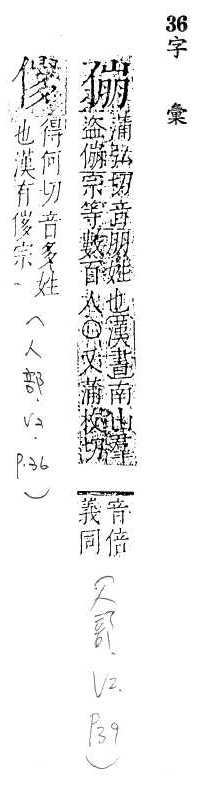 36
字彙
傰
蒲弘切音朋姓也漢書南山羣
盜傰宗等數百人○又蒲枚切
音倍
義同
(人部. V2. P39)
得何切音多姓
也漢有
宗
(人部. V2. P.36)